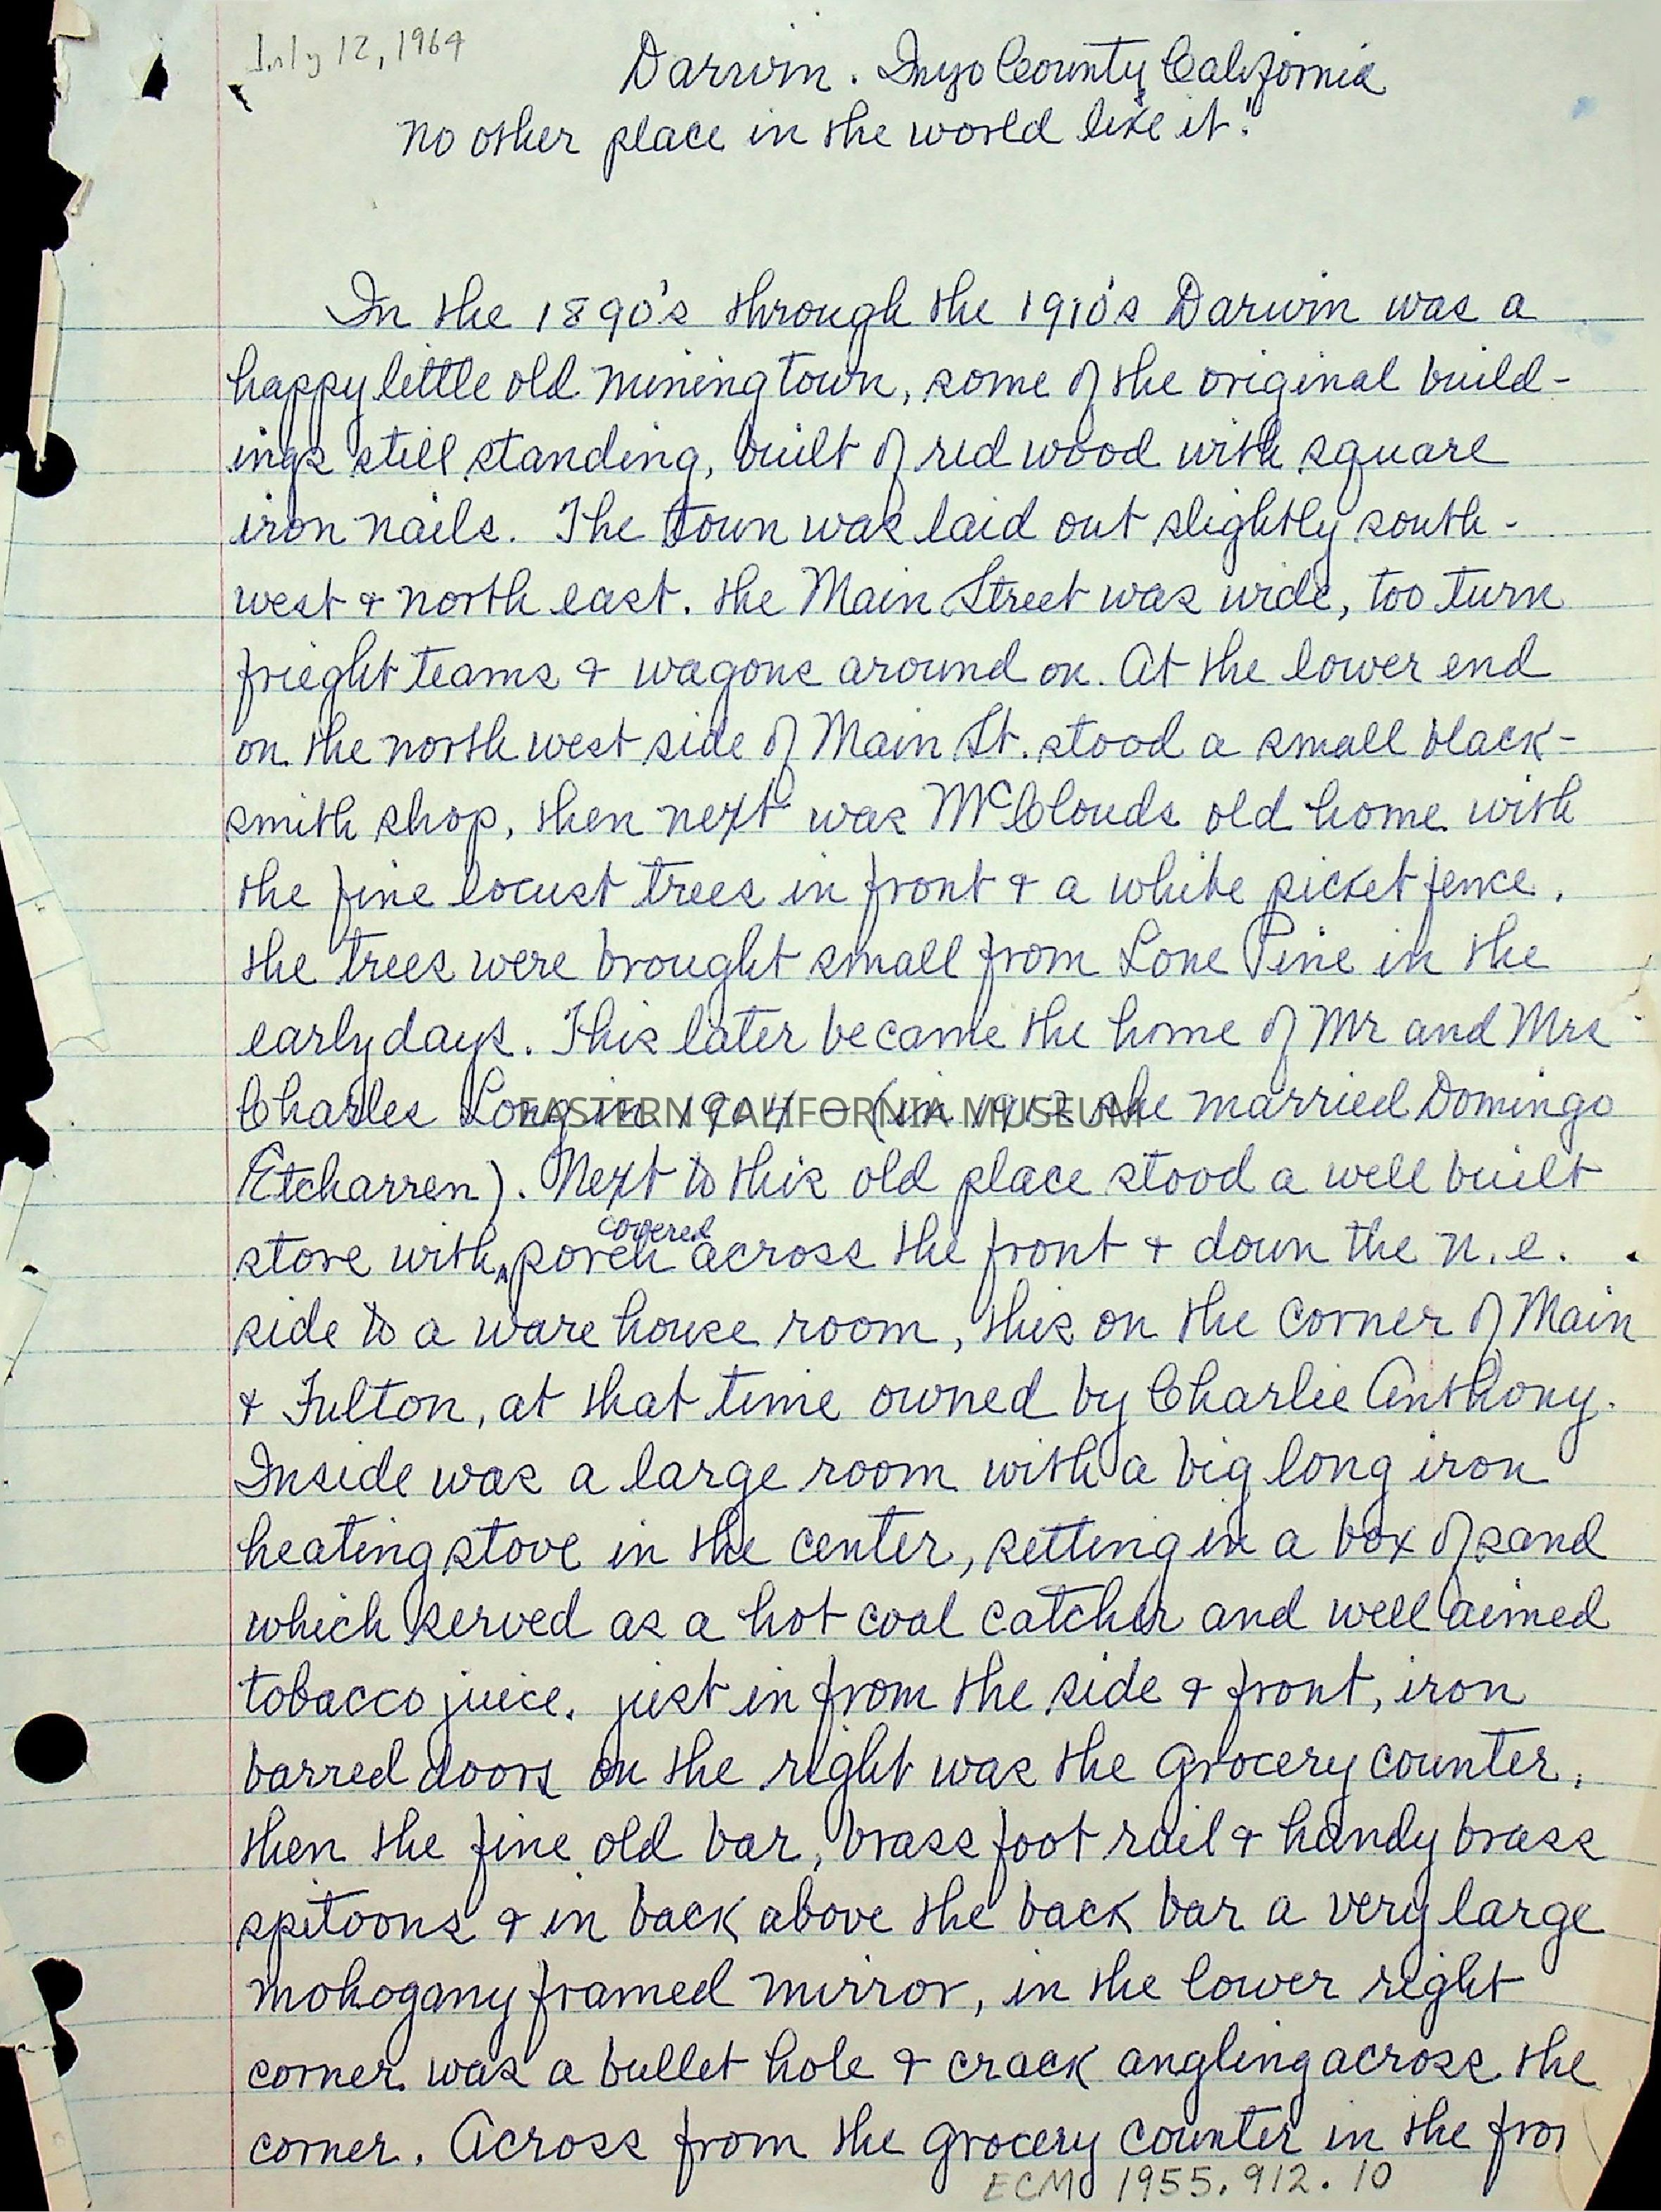 July 12, 1964
Darwin. Inyo County California
no other place in the world like it!"
In the 1890's through the 1910's Darwin was a
happy little old mining town, some of the original build-
ings still standing, built of red wood with square
iron nails. The town was laid out slightly south-
west & north east. the Main Street was wide, too turn
frieght teams & wagons around on. At the lower end
on the north west side of Main St. stood a small black-
smith shop, then next was McClouds old home with
the fine locust trees in front & a white picket fence.
the trees were brought small from Lone Pine in the
early days. This later became the home of Mr and Mrs
Charles Long in 1904 – (in 1912 she married Domingo
EASTERN CALIFORNIA MUSEUM
Etcharren). Next to this old place stood a well built
store with covered porch across the front & down the n.e.
side to a ware house room, this on the corner of Main
& Fulton, at that time owned by Charlie Anthony.
Inside was a large room with a big long iron
heating stove in the center, setting in a box of sand
which served as a hot coal catcher and well aimed
tobacco juice. just in from the side & front, iron
barred doors on the right was the grocery counter,
then the fine old bar, brass foot rail & handy brass
spitoons & in back above the back bar a very large
mohogany framed mirror, in the lower right
corner was a bullet hole & crack angling across the
corner. Across from the grocery counter in the fro
ECM 1955.912.10